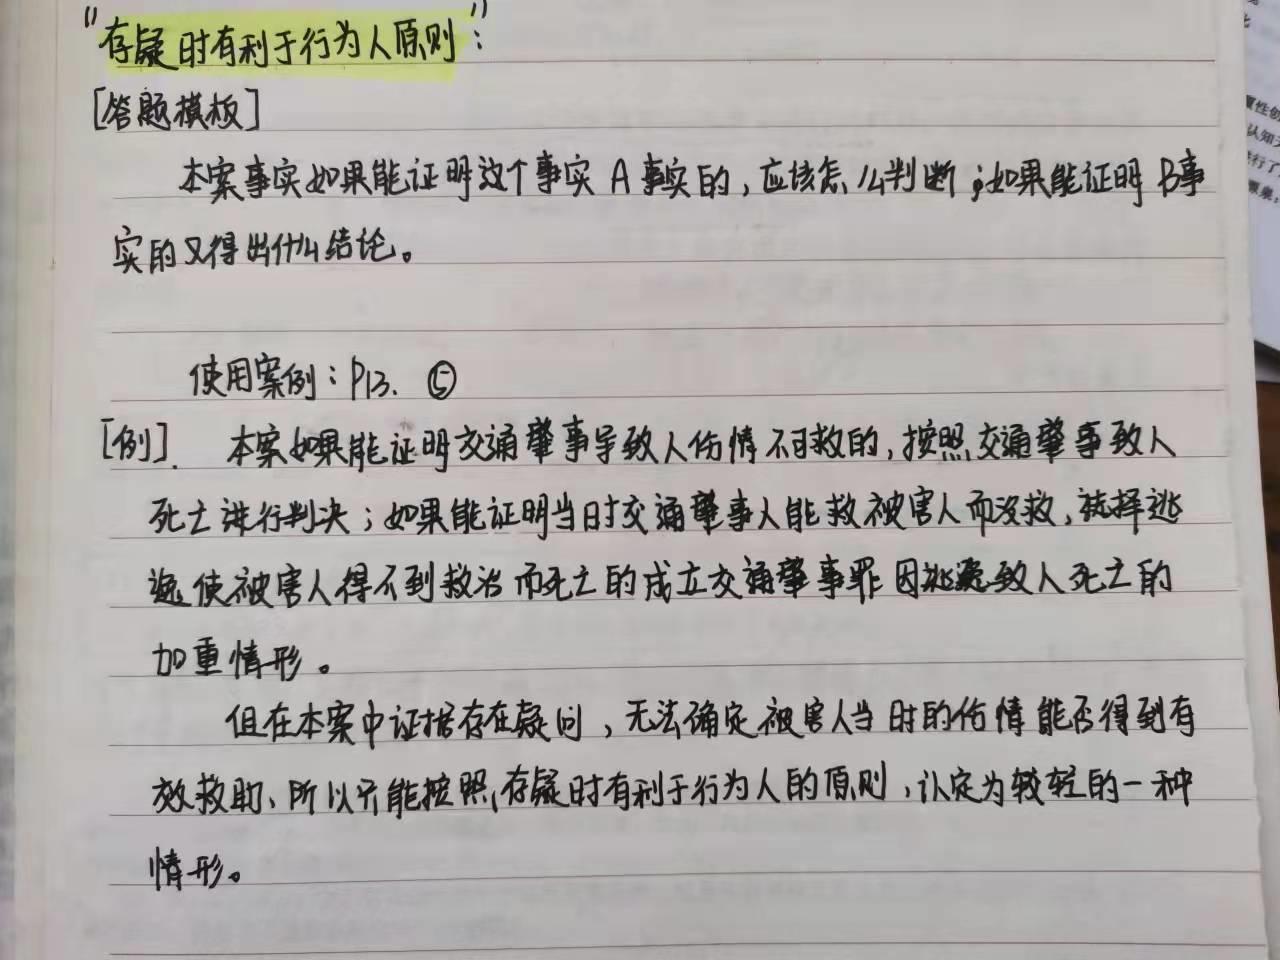 "存疑时有利于行为人原则":
[答题模板]
本案事实如果能证明这个事实A事实的,应该怎么判断;如果能证明B事
实的又得出什么结论。
使用案例:P13. ⑤
[例]. 本案如果能证明交通肇事导致人伤情不可救的,按照交通肇事致人
死亡进行判决;如果能证明当时交通肇事人能救被害人而没救,选择逃
逸使被害人得不到救治而死亡的成立交通肇事罪因逃逸致人死亡的
加重情形。
但在本案中证据存在疑问,无法确定被害人当时的伤情能否得到有
效救助、所以只能按照,存疑时有利于行为人的原则,认定为较轻的一种
情形。
认知